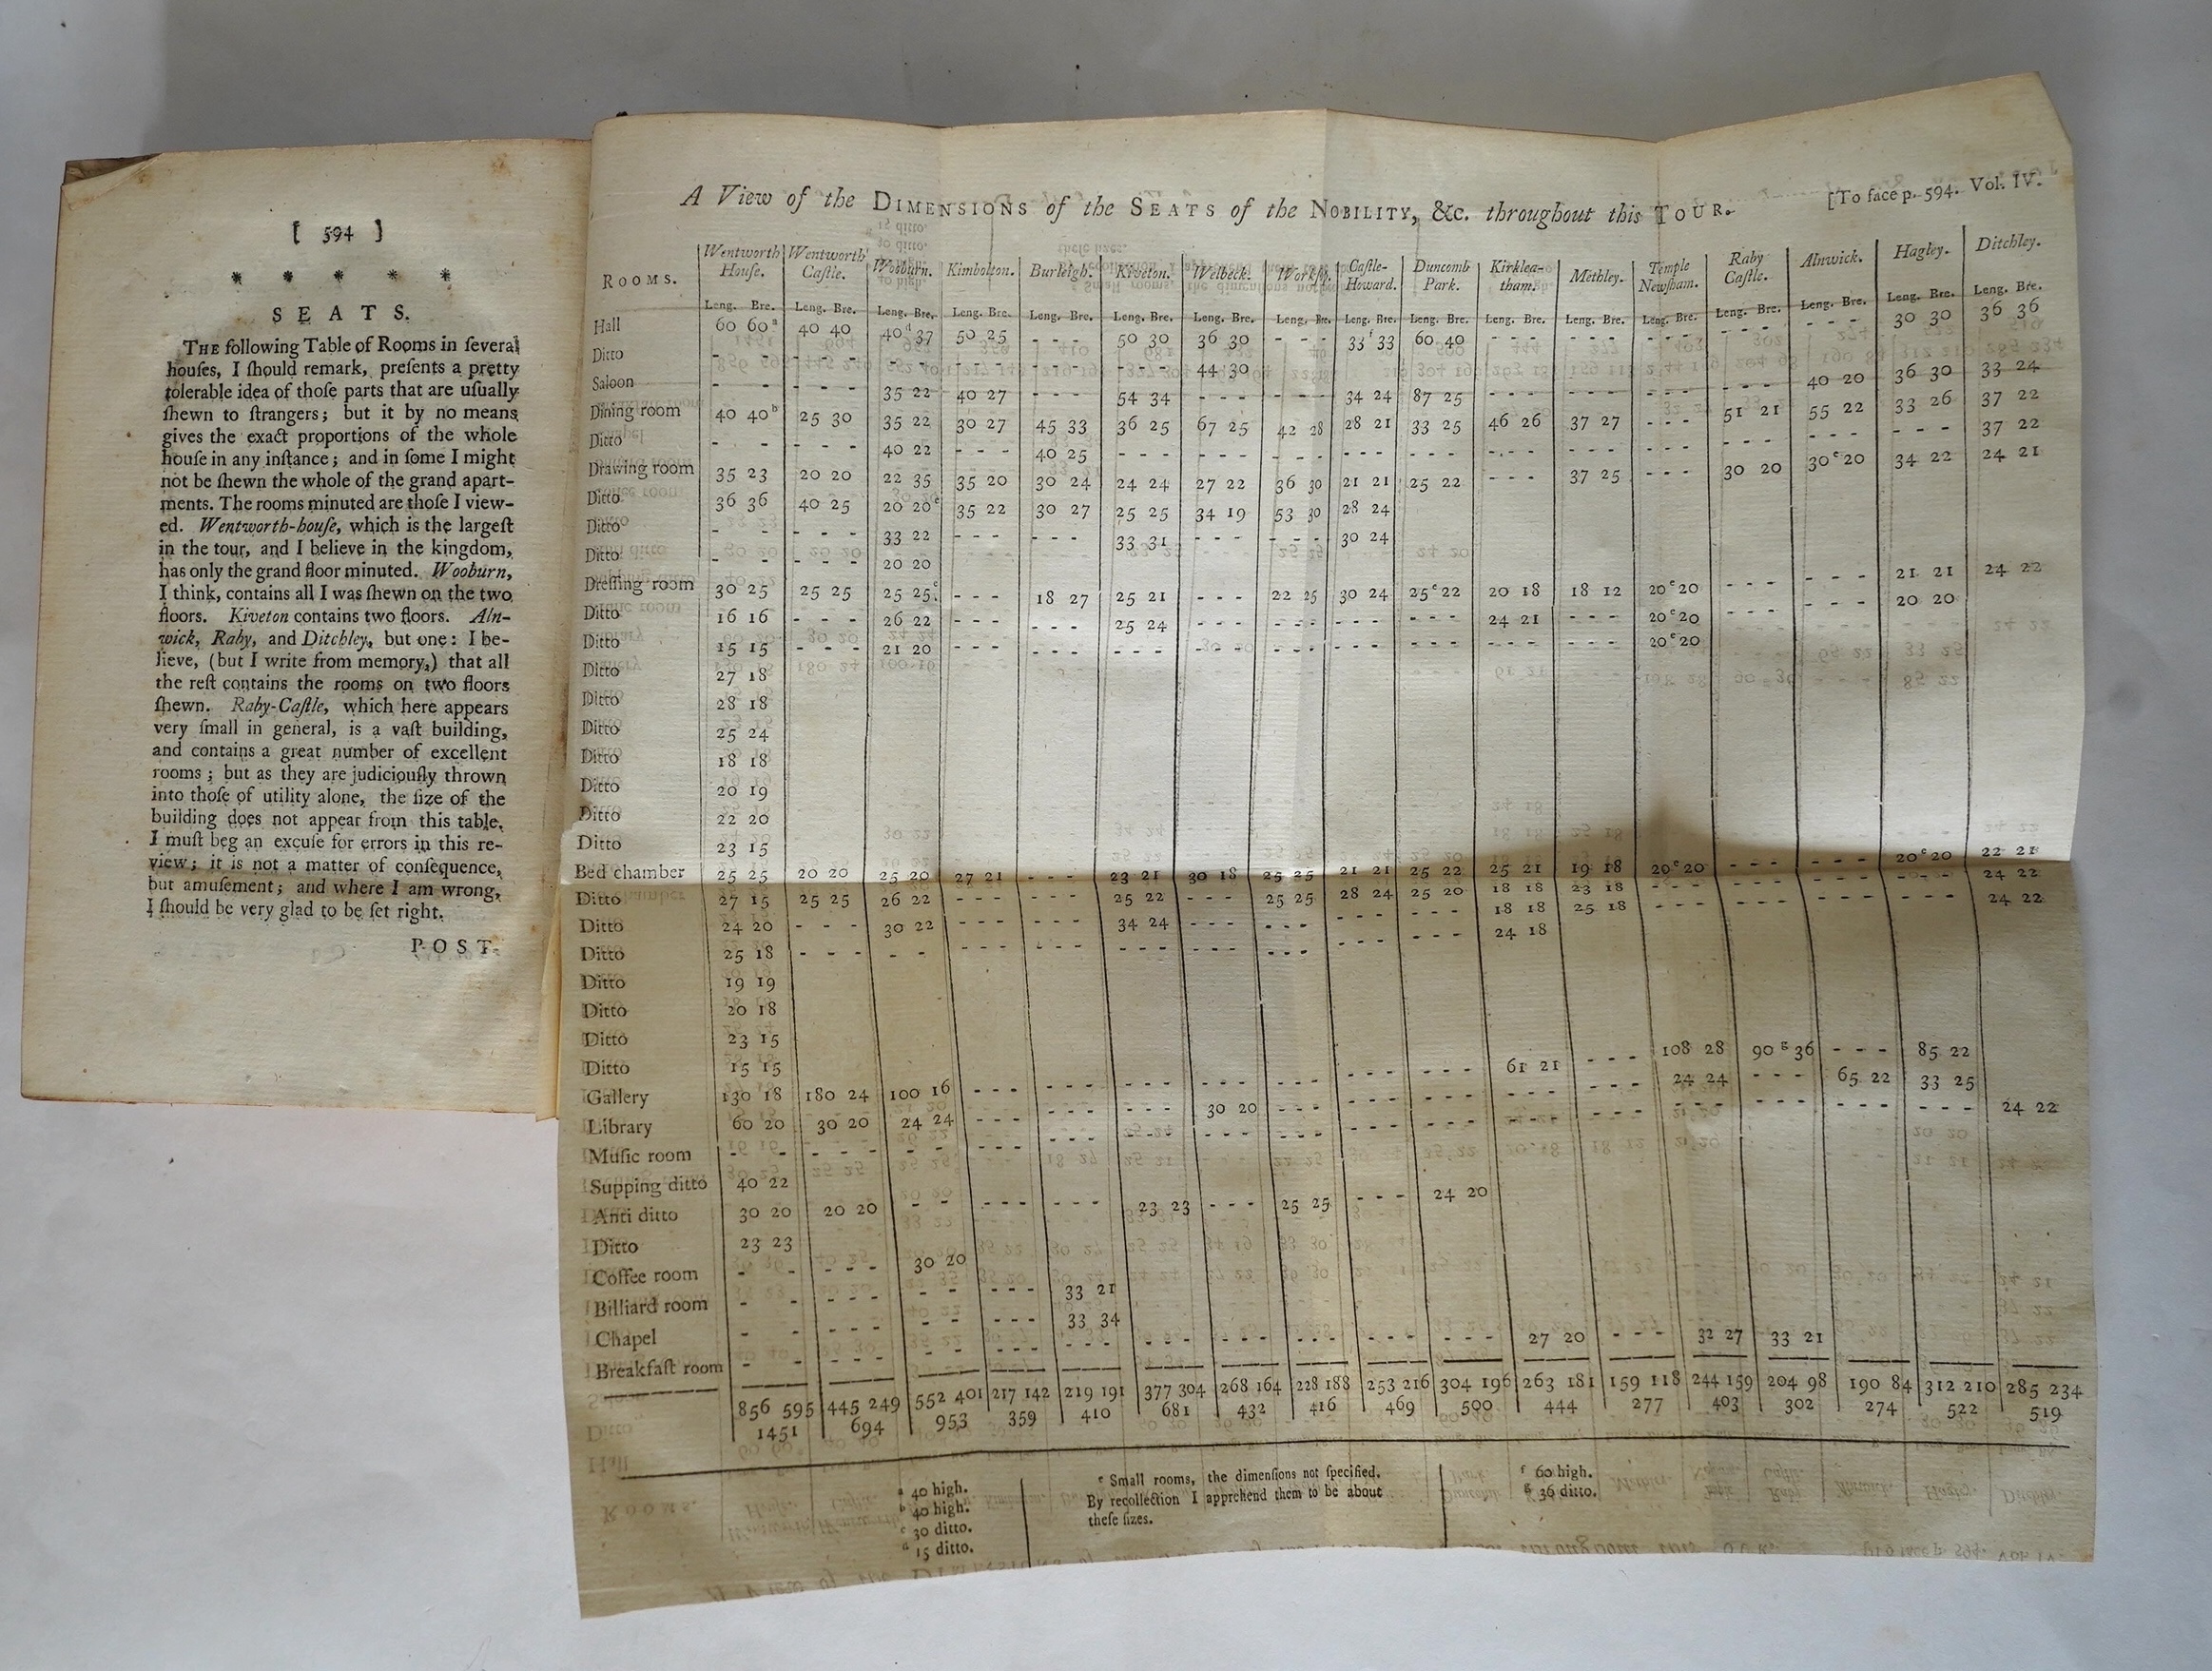 [ 594 ]
* * * * *
SEATS.
THE following Table of Rooms in ſeveral
houſes, I ſhould remark, preſents a pretty
tolerable idea of thoſe parts that are uſually
ſhewn to ſtrangers; but it by no means
gives the exact proportions of the whole
houſe in any inſtance; and in ſome I might
not be ſhewn the whole of the grand apart-
ments. The rooms minuted are thoſe I view-
ed. Wentworth-houſe, which is the largeſt
in the tour, and I believe in the kingdom,
has only the grand floor minuted. Wooburn,
I think, contains all I was ſhewn on the two
floors. Kiveton contains two floors. Aln-
wick, Raby, and Ditchley, but one: I be-
lieve, (but I write from memory,) that all
the reſt contains the rooms on two floors
ſhewn. Raby-Caſtle, which here appears
very ſmall in general, is a vaſt building,
and contains a great number of excellent
rooms; but as they are judiciouſly thrown
into thoſe of utility alone, the ſize of the
building does not appear from this table.
I muſt beg an excuſe for errors in this re-
view; it is not a matter of conſequence,
but amuſement; and where I am wrong,
I ſhould be very glad to be ſet right.
POST-
A View of the DIMENSIONS of the SEATS of the NOBILITY, &c. throughout this TOUR.
[To face p. 594. Vol. IV.
ROOMS. Wentworth Houſe. Wentworth Caſtle. Wooburn. Kimbolton. Burleigh. Kiveton. Welbeck. Workſop. Caſtle-Howard. Duncomb Park. Kirklea-tham. Methley. Temple Newſham. Raby Caſtle. Alnwick. Hagley. Ditchley.
Leng. Bre. Leng. Bre. Leng. Bre. Leng. Bre. Leng. Bre. Leng. Bre. Leng. Bre. Leng. Bre. Leng. Bre. Leng. Bre. Leng. Bre. Leng. Bre. Leng. Bre. Leng. Bre. Leng. Bre. Leng. Bre. Leng. Bre.
Hall 60 60ᵃ 40 40 40ᵈ 37 50 25 - - - 50 30 36 30 - - - 33ᶠ 33 60 40 - - - - - - - - - - - - - - - 30 30 36 36
Ditto - - - - - - - - - - - - - - - - - 44 30
Saloon - - - - - 35 22 40 27 - - - 54 34 - - - - - - 34 24 87 25 - - - - - - - - - - - - 40 20 36 30 33 24
Dining room 40 40ᵇ 25 30 35 22 30 27 45 33 36 25 67 25 42 28 28 21 33 25 46 26 37 27 - - - 51 21 55 22 33 26 37 22
Ditto - - - - - 40 22 - - - 40 25 - - - - - - - - - - - - - - - - - - - - - - - - - - - - - - - - - 37 22
Drawing room 35 23 20 20 22 35 35 20 30 24 24 24 27 22 36 30 21 21 25 22 - - - 37 25 - - - 30 20 30ᵉ20 34 22 24 21
Ditto 36 36 40 25 20 20ᵉ 35 22 30 27 25 25 34 19 53 30 28 24
Ditto - - - - - 33 22 - - - - - - 33 31 - - - - - - 30 24
Ditto - - - - - 20 20
Dreſſing room 30 25 25 25 25 25ᶜ - - - 18 27 25 21 - - - 22 25 30 24 25ᵉ22 20 18 18 12 20ᵉ20 - - - - - - 21 21 24 22
Ditto 16 16 - - - 26 22 - - - - - - 25 24 - - - - - - - - - - - - 24 21 - - - 20ᵉ20 - - - - - - 20 20
Ditto 15 15 - - - 21 20 - - - - - - - - - - - - - - - - - - - - - - - - - - - 20ᵉ20
Ditto 27 18
Ditto 28 18
Ditto 25 24
Ditto 18 18
Ditto 20 19
Ditto 22 20
Ditto 23 15
Bed chamber 25 25 20 20 25 20 27 21 - - - 23 21 30 18 25 25 21 21 25 22 25 21 19 18 20ᵉ20 - - - - - - 20ᵉ20 22 21
Ditto 27 15 25 25 26 22 - - - - - - 25 22 - - - 25 25 28 24 25 20 18 18 23 18 - - - - - - - - - - - - 24 22
Ditto 24 20 - - - 30 22 - - - - - - 34 24 - - - - - - - - - - - - 18 18 25 18 - - - - - - - - - - - - 24 22
Ditto 25 18 - - - - - - - - - - - - - - - - - - - - - - - - - 24 18
Ditto 19 19
Ditto 20 18
Ditto 23 15
Ditto 15 15
Gallery 130 18 180 24 100 16 - - - - - - - - - - - - - - - - - - - - - 61 21 - - - 108 28 90ᵍ36 - - - 85 22
Library 60 20 30 20 24 24 - - - - - - - - - 30 20 - - - - - - - - - - - - - - - 24 24 - - - 65 22 33 25
Muſic room - - - - - - - - - - - - - - - - - - - - - - - - - - - - - - - - - - - - - - - - - - - - - 24 22
Supping ditto 40 22
Anti ditto 30 20 20 20 - - - - - - - - 23 23 - - - 25 25 - - - 24 20
Ditto 23 23
Coffee room - - - - - 30 20
Billiard room - - - - - - - - - - 33 21
Chapel - - - - - - - - - - 33 34
Breakfaſt room - - - - - - - - - - - - - - - - - - - - - - - - - - - - 27 20 - - - 32 27 33 21
856 595 445 249 552 401 217 142 219 191 377 304 268 164 228 188 253 216 304 196 263 181 159 118 244 159 204 98 190 84 312 210 285 234
1451 694 953 359 410 681 432 416 469 500 444 277 403 302 274 522 519
ᵃ 40 high.
ᵇ 40 high.
ᶜ 30 ditto.
ᵈ 15 ditto.
ᵉ Small rooms, the dimenſions not ſpecified.
By recollection I apprehend them to be about
theſe ſizes.
ᶠ 60 high.
ᵍ 36 ditto.